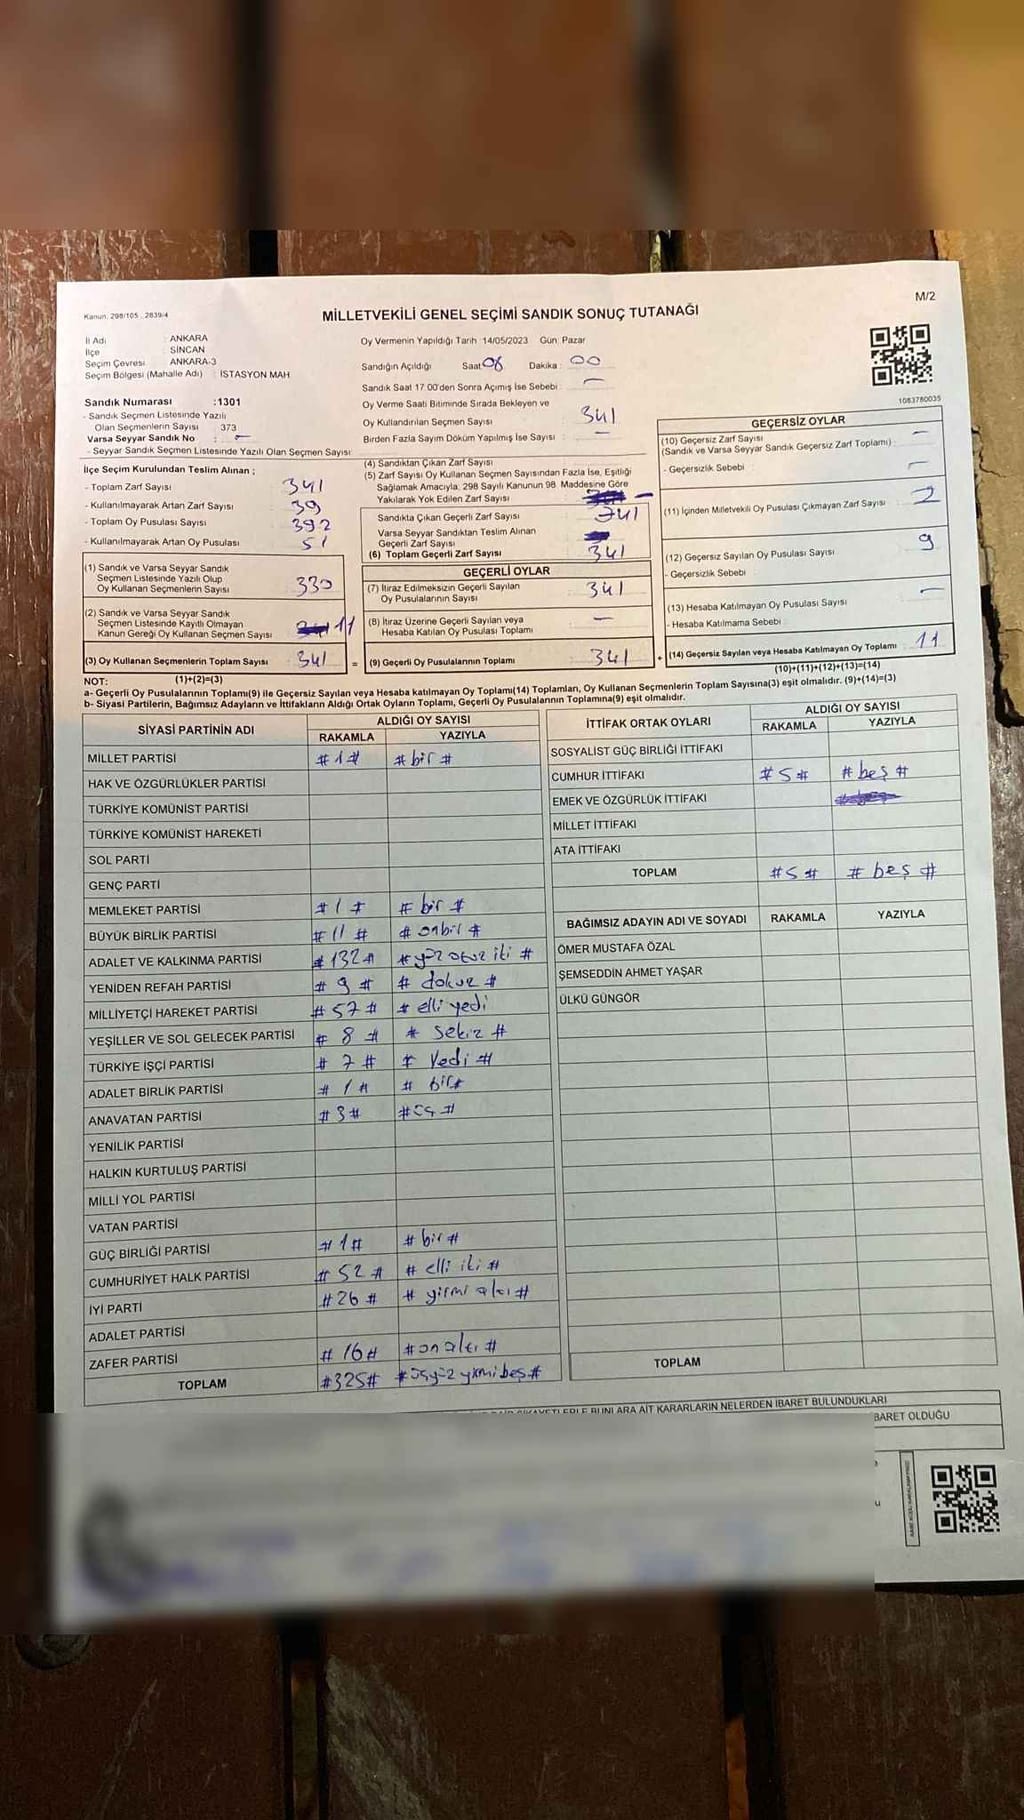 Kanun. 298/105 , 2839/4
M/2
MİLLETVEKİLİ GENEL SEÇİMİ SANDIK SONUÇ TUTANAĞI
İl Adı : ANKARA
İlçe : SİNCAN
Seçim Çevresi : ANKARA-3
Seçim Bölgesi (Mahalle Adı) : İSTASYON MAH.
Oy Vermenin Yapıldığı Tarih 14/05/2023 Gün: Pazar
Sandığın Açıldığı Saat 08 Dakika : 00
Sandık Saat 17:00'den Sonra Açımış İse Sebebi : -
Sandık Numarası : 1301
- Sandık Seçmen Listesinde Yazılı
Olan Seçmenlerin Sayısı 373
Varsa Seyyar Sandık No : -
- Seyyar Sandık Seçmen Listesinde Yazılı Olan Seçmen Sayısı
Oy Verme Saati Bitiminde Sırada Bekleyen ve
Oy Kullandırılan Seçmen Sayısı 341
Birden Fazla Sayım Döküm Yapılmış İse Sayısı -
1083780035
İlçe Seçim Kurulundan Teslim Alınan ;
- Toplam Zarf Sayısı 341
- Kullanılmayarak Artan Zarf Sayısı 39
- Toplam Oy Pusulası Sayısı 392
- Kullanılmayarak Artan Oy Pusulası 51
(1) Sandık ve Varsa Seyyar Sandık
Seçmen Listesinde Yazılı Olup
Oy Kullanan Seçmenlerin Sayısı 330
(2) Sandık ve Varsa Seyyar Sandık
Seçmen Listesinde Kayıtlı Olmayan
Kanun Gereği Oy Kullanan Seçmen Sayısı 11
(3) Oy Kullanan Seçmenlerin Toplam Sayısı 341 =
(4) Sandıktan Çıkan Zarf Sayısı
(5) Zarf Sayısı Oy Kullanan Seçmen Sayısından Fazla İse, Eşitliği
Sağlamak Amacıyla, 298 Sayılı Kanunun 98. Maddesine Göre
Yakılarak Yok Edilen Zarf Sayısı -
Sandıkta Çıkan Geçerli Zarf Sayısı 341
Varsa Seyyar Sandıktan Teslim Alınan
Geçerli Zarf Sayısı
(6) Toplam Geçerli Zarf Sayısı 341
GEÇERLİ OYLAR
(7) İtiraz Edilmeksizin Geçerli Sayılan
Oy Pusulalarının Sayısı 341
(8) İtiraz Üzerine Geçerli Sayılan veya
Hesaba Katılan Oy Pusulası Toplamı -
(9) Geçerli Oy Pusulalarının Toplamı 341 +
GEÇERSİZ OYLAR
(10) Geçersiz Zarf Sayısı
(Sandık ve Varsa Seyyar Sandık Geçersiz Zarf Toplamı) : -
- Geçersizlik Sebebi -
(11) İçinden Milletvekili Oy Pusulası Çıkmayan Zarf Sayısı 2
(12) Geçersiz Sayılan Oy Pusulası Sayısı 9
- Geçersizlik Sebebi
(13) Hesaba Katılmayan Oy Pusulası Sayısı -
- Hesaba Katılmama Sebebi
(14) Geçersiz Sayılan veya Hesaba Katılmayan Oy Toplamı 11
NOT: (1)+(2)=(3)
(10)+(11)+(12)+(13)=(14)
a- Geçerli Oy Pusulalarının Toplamı(9) ile Geçersiz Sayılan veya Hesaba katılmayan Oy Toplamı(14) Toplamları, Oy Kullanan Seçmenlerin Toplam Sayısına(3) eşit olmalıdır. (9)+(14)=(3)
b- Siyasi Partilerin, Bağımsız Adayların ve İttifakların Aldığı Ortak Oyların Toplamı, Geçerli Oy Pusulalarının Toplamına(9) eşit olmalıdır.
SİYASİ PARTİNİN ADI ALDIĞI OY SAYISI
RAKAMLA YAZIYLA
MİLLET PARTİSİ #1# #bir#
HAK VE ÖZGÜRLÜKLER PARTİSİ
TÜRKİYE KOMÜNİST PARTİSİ
TÜRKİYE KOMÜNİST HAREKETİ
SOL PARTİ
GENÇ PARTİ
MEMLEKET PARTİSİ #1# #bir#
BÜYÜK BİRLİK PARTİSİ #11# #onbir#
ADALET VE KALKINMA PARTİSİ #132# #yüz otuz iki#
YENİDEN REFAH PARTİSİ #9# #dokuz#
MİLLİYETÇİ HAREKET PARTİSİ #57# #elli yedi
YEŞİLLER VE SOL GELECEK PARTİSİ #8# #sekiz#
TÜRKİYE İŞÇİ PARTİSİ #7# #Yedi#
ADALET BİRLİK PARTİSİ #1# #bir#
ANAVATAN PARTİSİ #3# #üç#
YENİLİK PARTİSİ
HALKIN KURTULUŞ PARTİSİ
MİLLİ YOL PARTİSİ
VATAN PARTİSİ
GÜÇ BİRLİĞİ PARTİSİ #1# #bir#
CUMHURİYET HALK PARTİSİ #52# #elli iki#
İYİ PARTİ #26# #yirmi altı#
ADALET PARTİSİ
ZAFER PARTİSİ #16# #on altı#
TOPLAM #325# #üçyüz yirmibeş#
İTTİFAK ORTAK OYLARI ALDIĞI OY SAYISI
RAKAMLA YAZIYLA
SOSYALİST GÜÇ BİRLİĞİ İTTİFAKI
CUMHUR İTTİFAKI #5# #beş#
EMEK VE ÖZGÜRLÜK İTTİFAKI
MİLLET İTTİFAKI
ATA İTTİFAKI
TOPLAM #5# #beş#
BAĞIMSIZ ADAYIN ADI VE SOYADI RAKAMLA YAZIYLA
ÖMER MUSTAFA ÖZAL
ŞEMSEDDİN AHMET YAŞAR
ÜLKÜ GÜNGÖR
TOPLAM
BUNLARA AİT KARARLARIN NELERDEN İBARET BULUNDUKLARI
BARET OLDUĞU